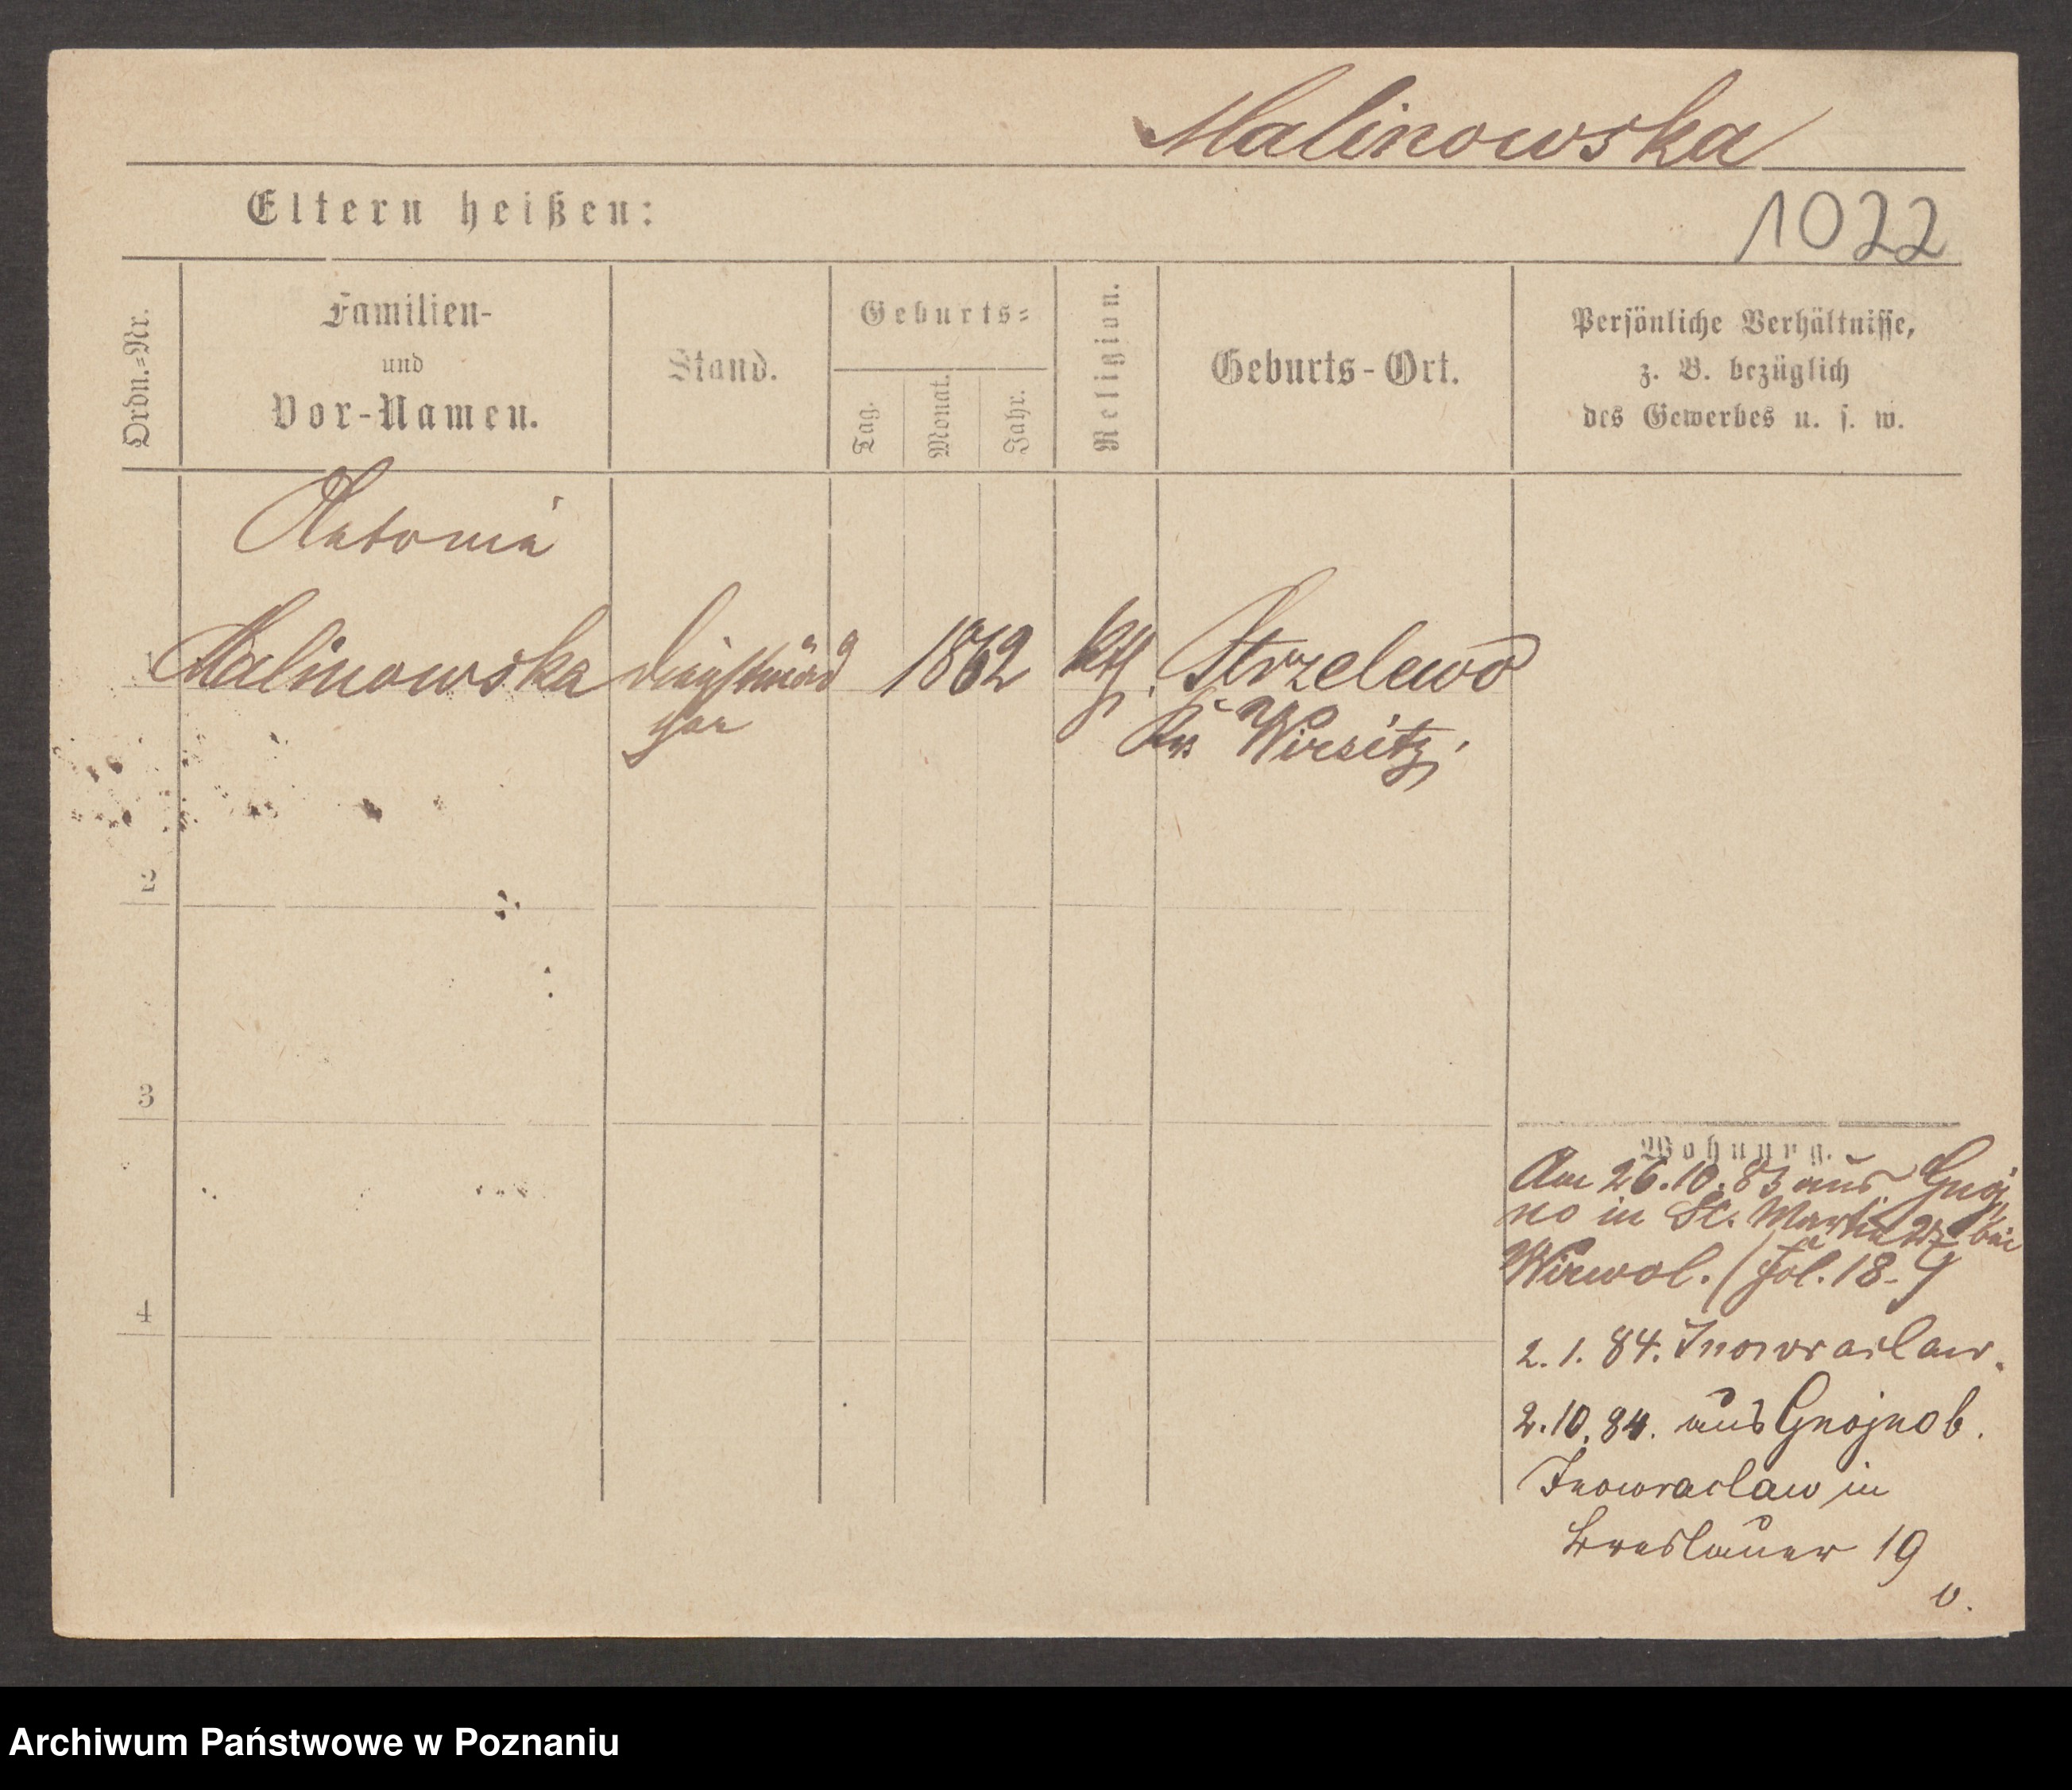 Malinowska
Eltern heißen:
1022
Ordn.=Nr.
Familien-
und
Vor-Namen.
Stand.
Geburts=
Tag.
Monat.
Jahr.
Religion.
Geburts-Ort.
Persönliche Verhältnisse,
z. B. bezüglich
des Gewerbes u. s. w.
Antonia
1 Malinowska Dienstmäd 1862 kth. Strzelewo
chen Krs Wirsitz.
2
3
Wohnung.
Am 26.10.83 aus Gnoj
no in St. Martin bei
(Fol. 18-
4
2. 1. 84. Inowraclaw.
2.10.84. aus Gnojno b.
Inowraclaw in
Breslauer 19
v.
Archiwum Państwowe w Poznaniu